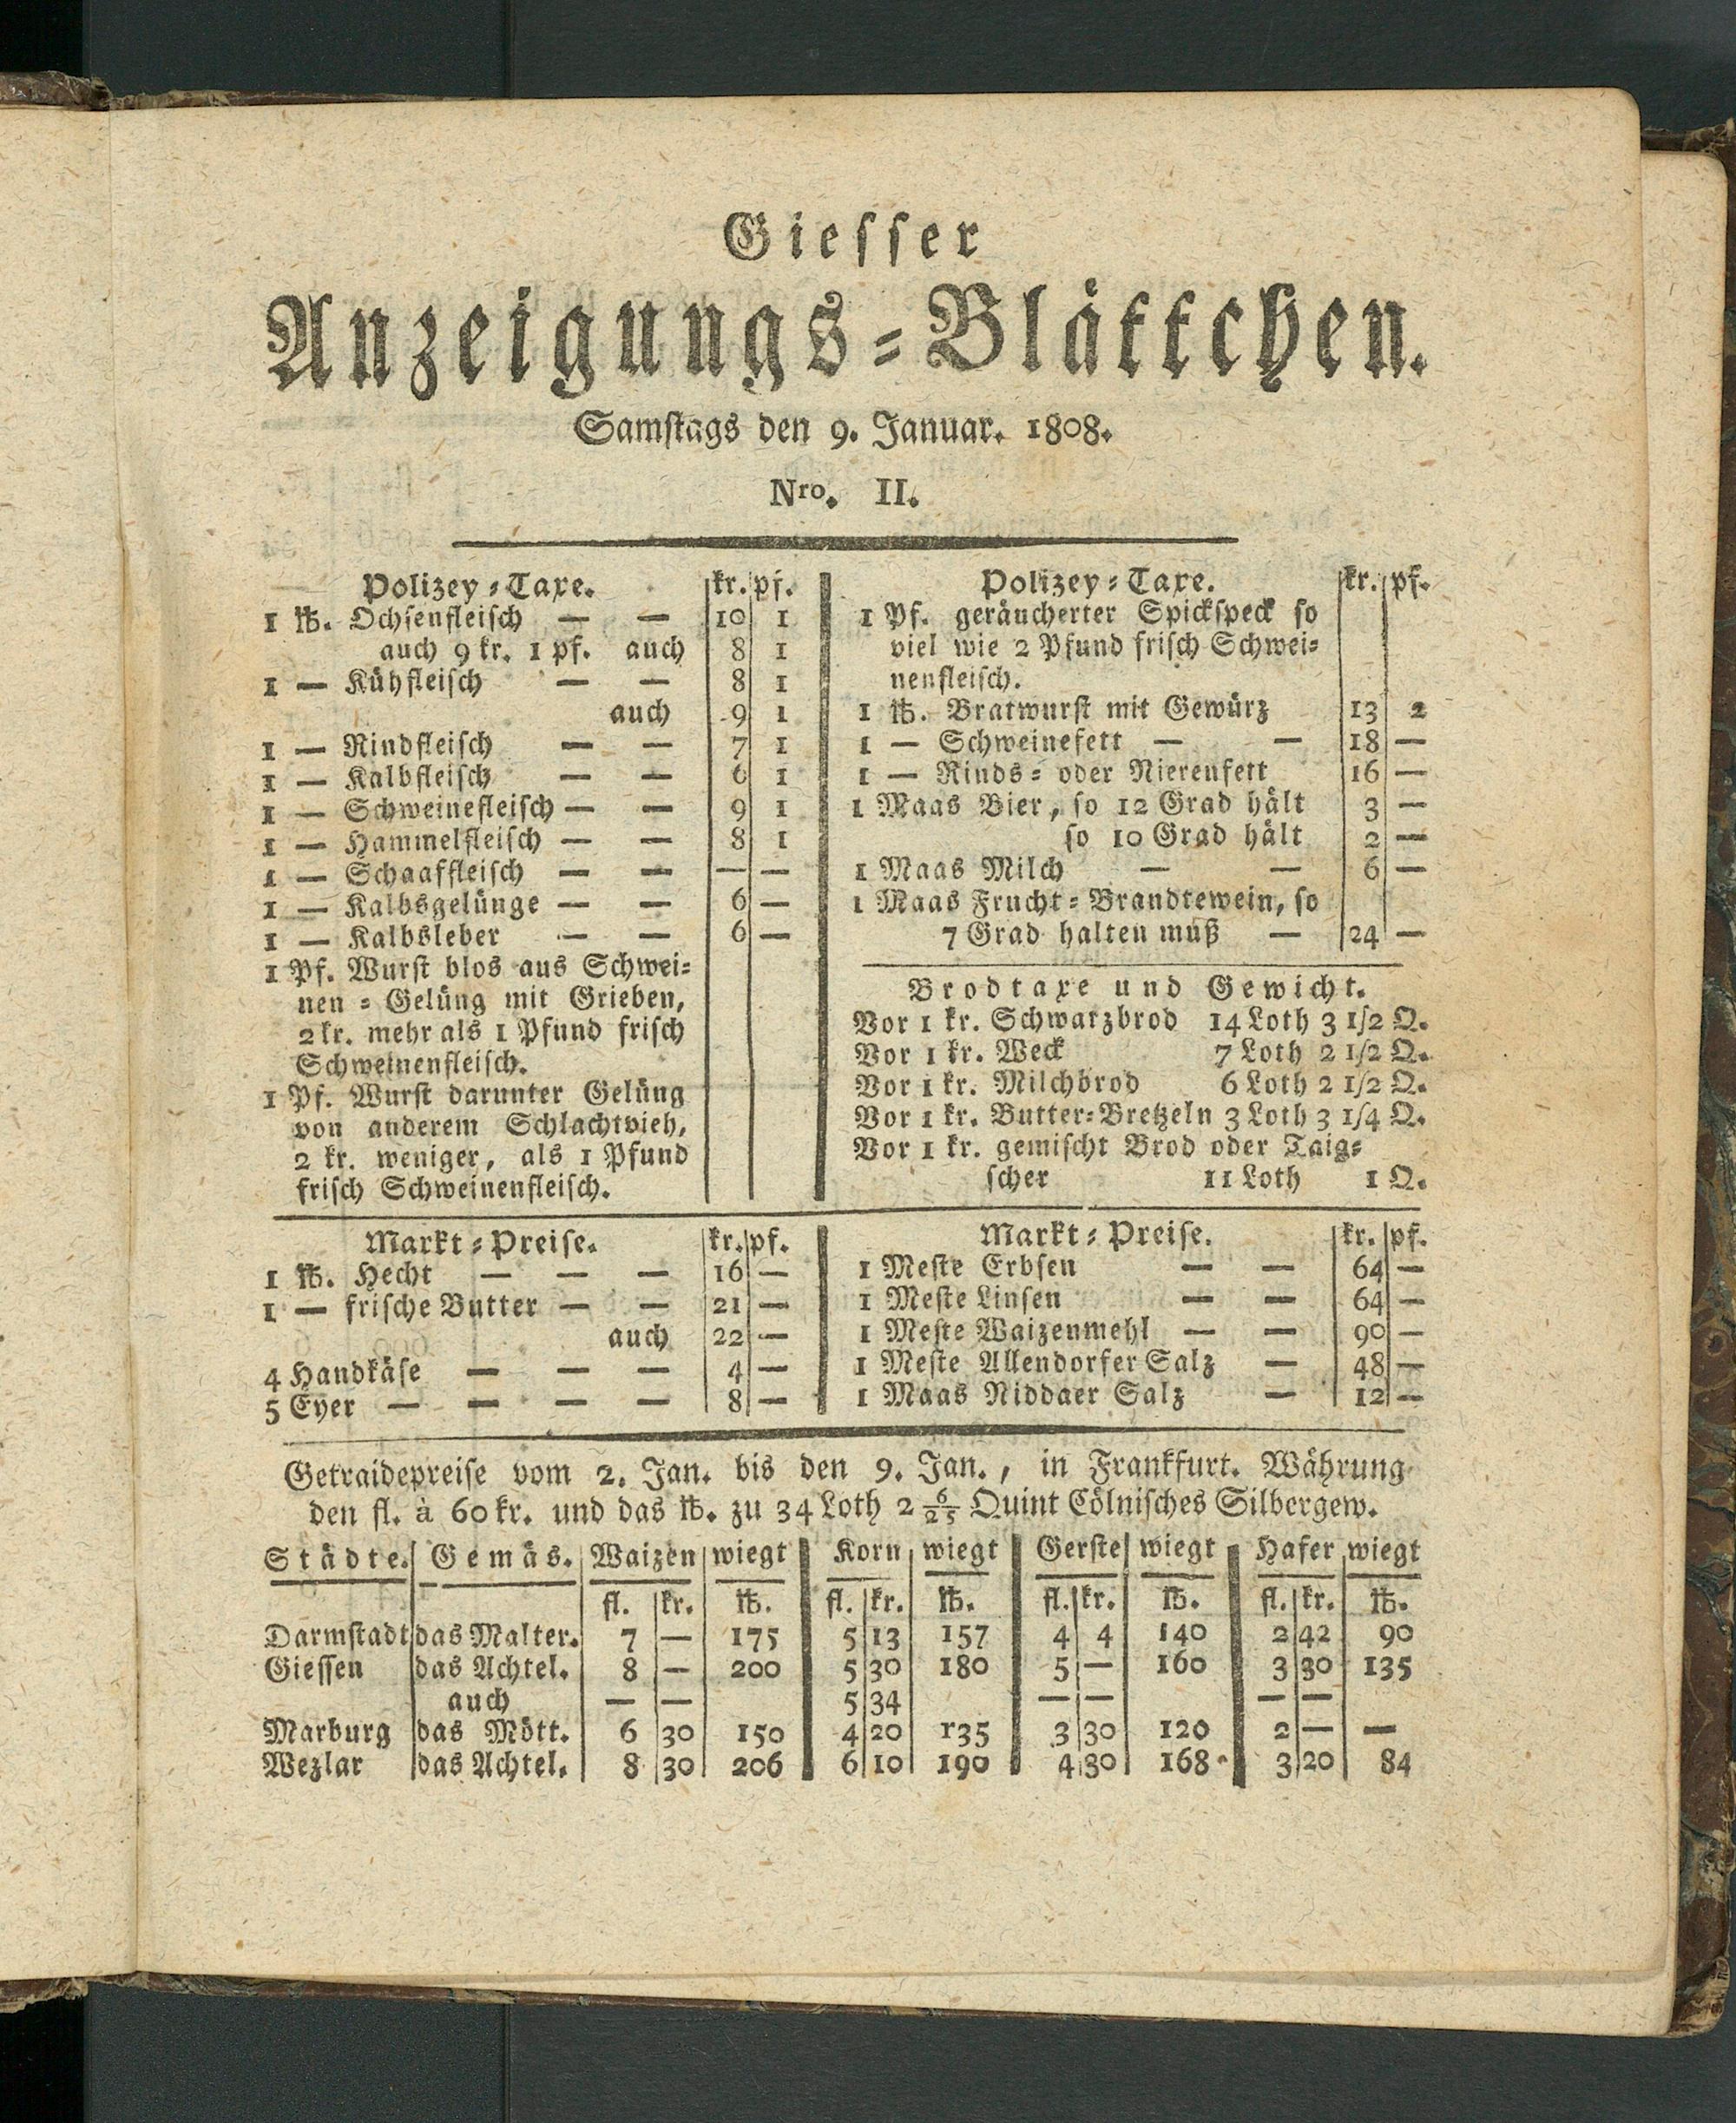 Giesser
Anzeigungs-Blättchen.
Samstags den 9. Januar. 1808.
Nro. II.
Polizey-Taxe. kr. pf.
1 ℔. Ochsenfleisch — — 10 1
auch 9 kr. 1 pf. auch 8 1
1 — Kühfleisch — — 8 1
auch 9 1
1 — Rindfleisch — — 7 1
1 — Kalbfleisch — — 6 1
1 — Schweinefleisch — — 9 1
1 — Hammelfleisch — — 8 1
1 — Schaaffleisch — — — —
1 — Kalbsgelünge — — 6 —
1 — Kalbsleber — — 6 —
1 Pf. Wurst blos aus Schwei-
nen-Gelüng mit Grieben,
2 kr. mehr als 1 Pfund frisch
Schweinenfleisch.
1 Pf. Wurst darunter Gelüng
von anderem Schlachtvieh,
2 kr. weniger, als 1 Pfund
frisch Schweinenfleisch.
Polizey-Taxe. kr. pf.
1 Pf. geräucherter Spickspeck so
viel wie 2 Pfund frisch Schwei-
nenfleisch.
1 ℔. Bratwurst mit Gewürz 13 2
1 — Schweinefett — — 18 —
1 — Rinds- oder Nierenfett 16 —
1 Maas Bier, so 12 Grad hält 3 —
so 10 Grad hält 2 —
1 Maas Milch — — 6 —
1 Maas Frucht-Brandtewein, so
7 Grad halten muß — 24 —
Brodtaxe und Gewicht.
Vor 1 kr. Schwarzbrod 14 Loth 3 1/2 Q.
Vor 1 kr. Weck 7 Loth 2 1/2 Q.
Vor 1 kr. Milchbrod 6 Loth 2 1/2 Q.
Vor 1 kr. Butter-Bretzeln 3 Loth 3 1/4 Q.
Vor 1 kr. gemischt Brod oder Taig-
scher 11 Loth 1 Q.
Markt-Preise. kr. pf.
1 ℔. Hecht — — — 16 —
1 — frische Butter — — 21 —
auch 22 —
4 Handkäse — — — 4 —
5 Eyer — — — — 8 —
Markt-Preise. kr. pf.
1 Meste Erbsen — — 64 —
1 Meste Linsen — — 64 —
1 Meste Waizenmehl — — 90 —
1 Meste Allendorfer Salz — 48 —
1 Maas Niddaer Salz — 12 —
Getraidepreise vom 2. Jan. bis den 9. Jan., in Frankfurt. Währung
den fl. à 60 kr. und das ℔. zu 34 Loth 2 6/25 Quint Cölnisches Silbergew.
Städte. Gemäs. Waizen wiegt Korn wiegt Gerste wiegt Hafer wiegt
fl. kr. ℔. fl. kr. ℔. fl. kr. ℔. fl. kr. ℔.
Darmstadt das Malter. 7 — 175 5 13 157 4 4 140 2 42 90
Giessen das Achtel. 8 — 200 5 30 180 5 — 160 3 30 135
auch — — 5 34 — — — —
Marburg das Mött. 6 30 150 4 20 135 3 30 120 2 — —
Wezlar das Achtel. 8 30 206 6 10 190 4 30 168 3 20 84